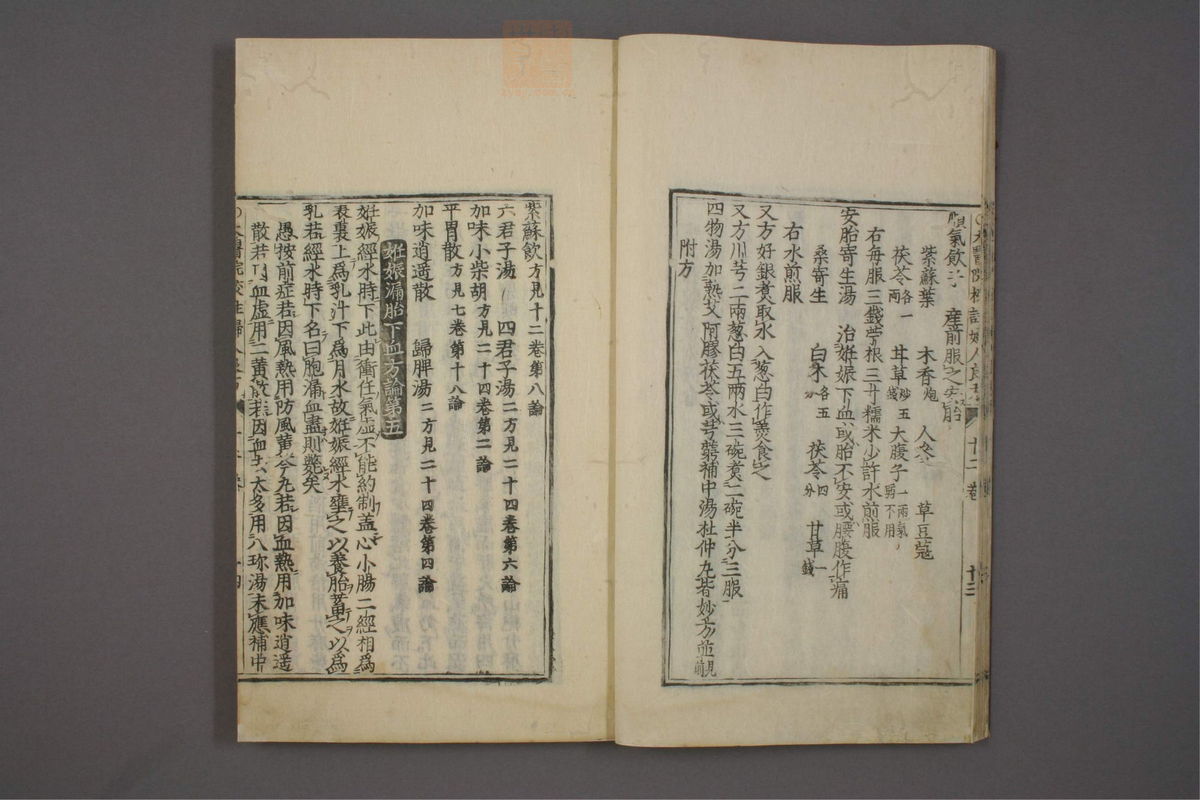 順氣飲子　産前服之安胎
紫蘇葉　木香炮　人參　草豆蔻
茯苓各一兩　甘草炒五錢　大腹子一兩氣弱不用
右每服三錢苧根三寸糯米少許水煎服
安胎寄生湯　治姙娠下血或胎不安或腰腹作痛
桑寄生　白朮各五分　茯苓四分　甘草一錢
右水煎服
又方好銀煮取水入葱白作羹食之
又方川芎二兩葱白五兩水三碗煮二碗半分三服
四物湯加熟艾阿膠茯苓或芎藭補中湯杜仲丸皆妙方並見前
附方
紫蘇飲方見十二卷第八論
六君子湯　四君子湯二方見二十四卷第六論
加味小柴胡方見二十四卷第二論
平胃散方見七卷第十八論
加味逍遥散　歸脾湯二方見二十四卷第四論
姙娠漏胎下血方論第五
姙娠經水時下此由衝任氣虛不能約制蓋心小腸二經相為
表裏上為乳汁下為月水故姙娠經水壅之以養胎蓄之以為
乳若經水時下名曰胞漏血盡則斃矣
愚按前症若因風熱用防風黄芩丸若因血熱用加味逍遥
散若因血虛用二黄散若因血去太多用八珍湯未應補中